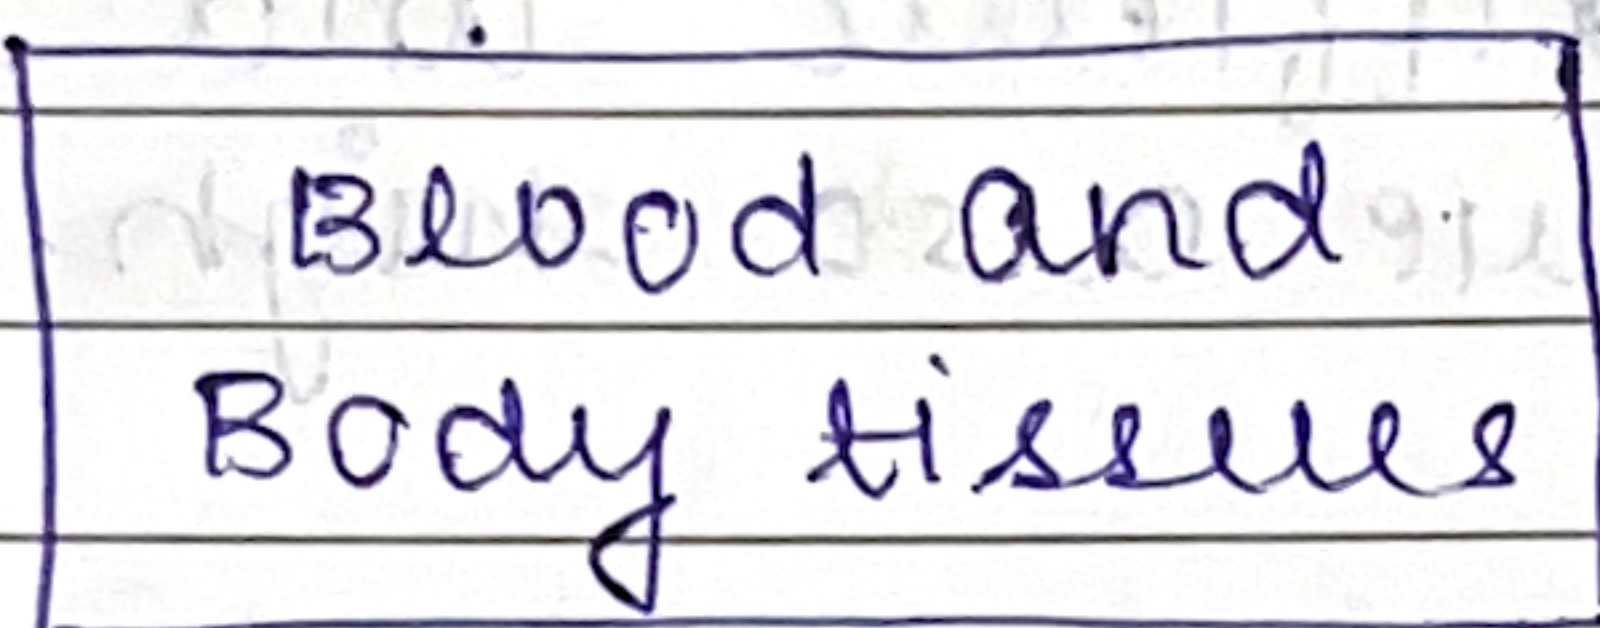 Blood and
Body tissues